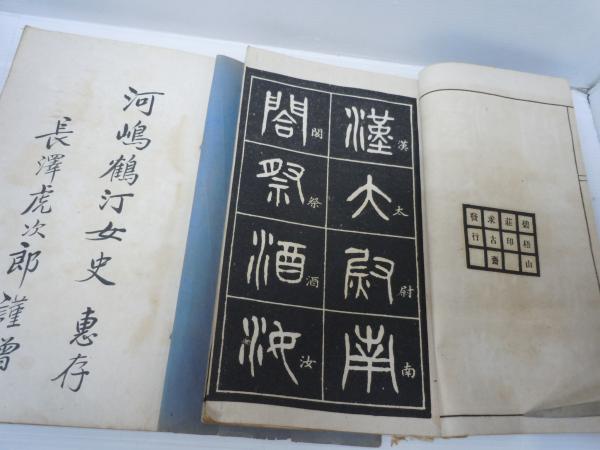 碧梧山
莊印
求古齋
發行
漢大尉南
漢太尉南
閣祭酒汝
閣祭酒汝
河嶋鶴汀女史 惠存
長澤虎次郎 謹贈